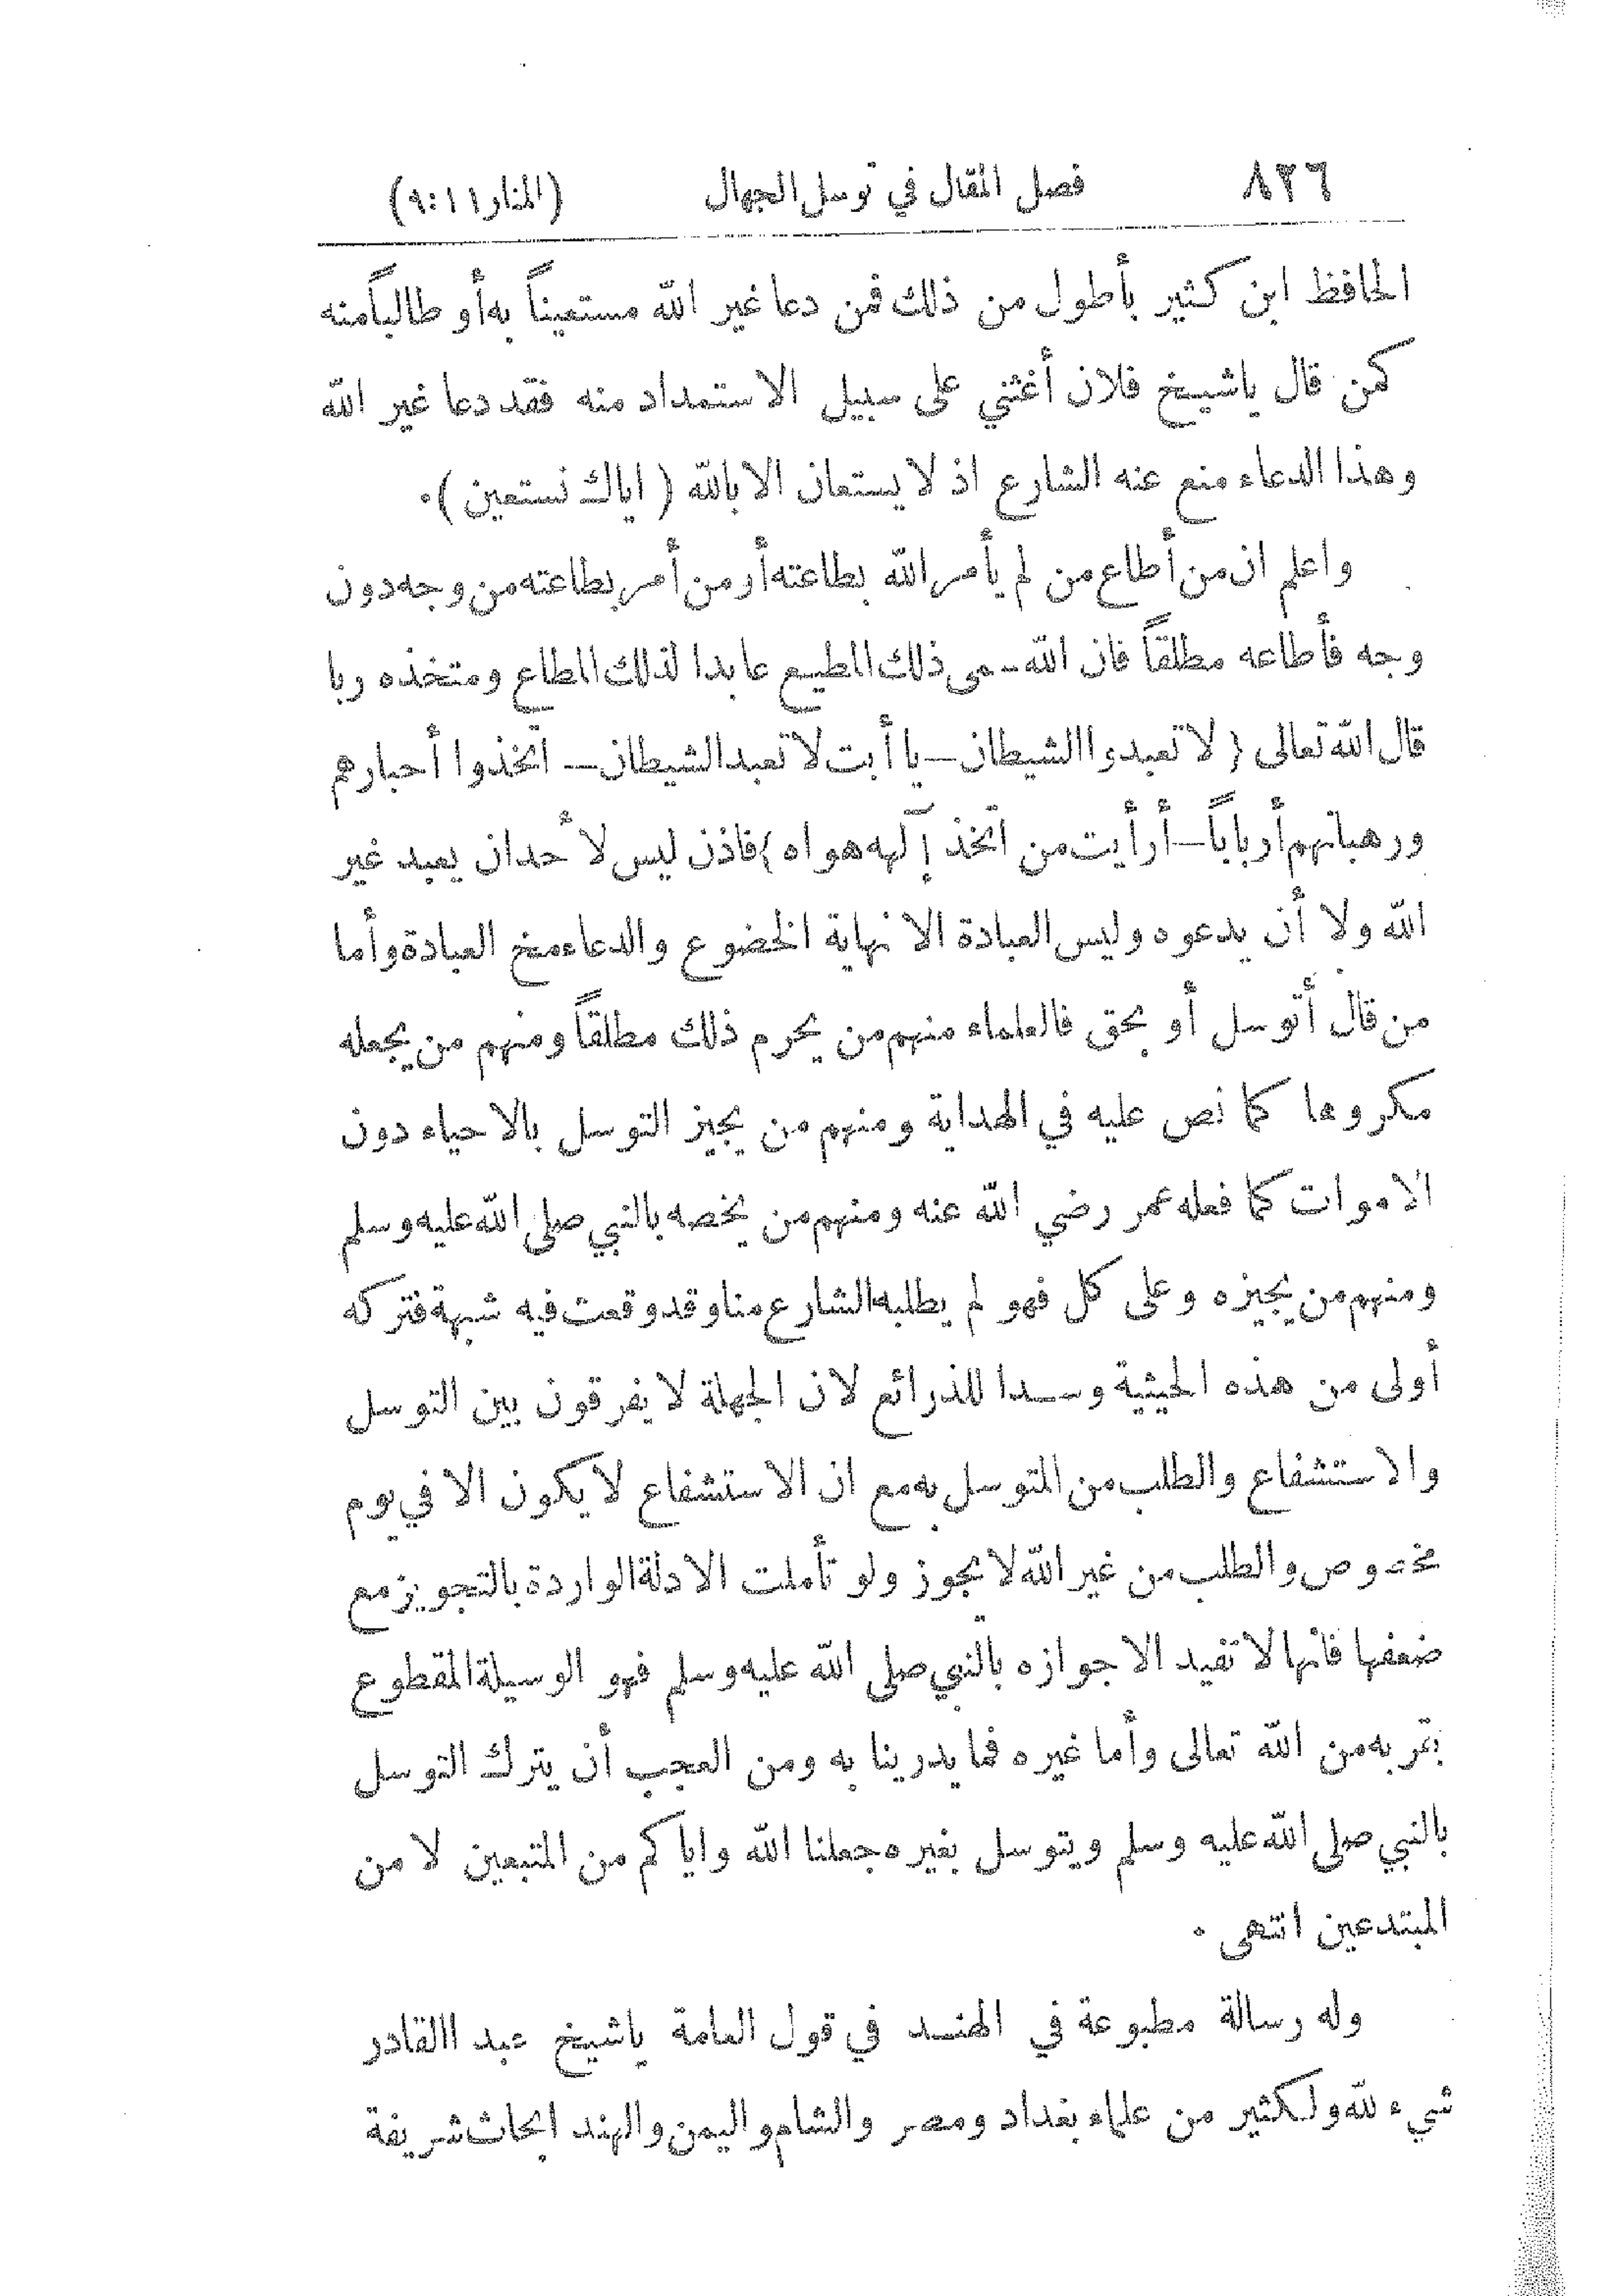 ٨٢٦ فصل المقال في توسل الجهال (المنار ١١:٩)
الحافظ ابن كثير بأطول من ذلك فمن دعا غير الله مستعيناً به أو طالباً منه
كمن قال ياشيخ فلان أغثني على سبيل الاستمداد منه فقد دعا غير الله
وهذا الدعاء منع عنه الشارع اذ لا يستعان الا بالله ( اياك نستعين ) .
واعلم ان من أطاع من لم يأمر الله بطاعته أو من أمر بطاعته من وجه دون
وجه فأطاعه مطلقاً فان الله سمى ذلك المطيع عابدا لذلك المطاع ومتخذه ربا
قال الله تعالى ( لا تعبدوا الشيطان — يا أبت لا تعبد الشيطان — اتخذوا أحبارهم
ورهبانهم أرباباً — أرأيت من اتخذ إلهه هواه ) فاذن ليس لأحد ان يعبد غير
الله ولا أن يدعوه وليس العبادة الا نهاية الخضوع والدعاء مخ العبادة وأما
من قال أتوسل أو بحق فالعلماء منهم من يحرم ذلك مطلقاً ومنهم من يجعله
مكروها كما نص عليه في الهداية ومنهم من يجيز التوسل بالاحياء دون
الاموات كما فعله عمر رضي الله عنه ومنهم من يخصه بالنبي صلى الله عليه وسلم
ومنهم من يجيزه وعلى كل فهو لم يطلبه الشارع منا وقد وقعت فيه شبهة فتركه
أولى من هذه الحيثية وسدا للذرائع لان الجهلة لا يفرقون بين التوسل
والاستشفاع والطلب من المتوسل به مع ان الاستشفاع لا يكون الا في يوم
مخصوص والطلب من غير الله لا يجوز ولو تأملت الادلة الواردة بالتجويز مع
ضعفها فانها لا تفيد الا جوازه بالنبي صلى الله عليه وسلم فهو الوسيلة المقطوع
بقربه من الله تعالى وأما غيره فما يدرينا به ومن العجب أن يترك التوسل
بالنبي صلى الله عليه وسلم ويتوسل بغيره جعلنا الله واياكم من المتبعين لا من
المبتدعين انتهى .
وله رسالة مطبوعة في الهند في قول العامة ياشيخ عبد القادر
شيء لله ولكثير من علماء بغداد ومصر والشام واليمن والهند ابحاث شريفة